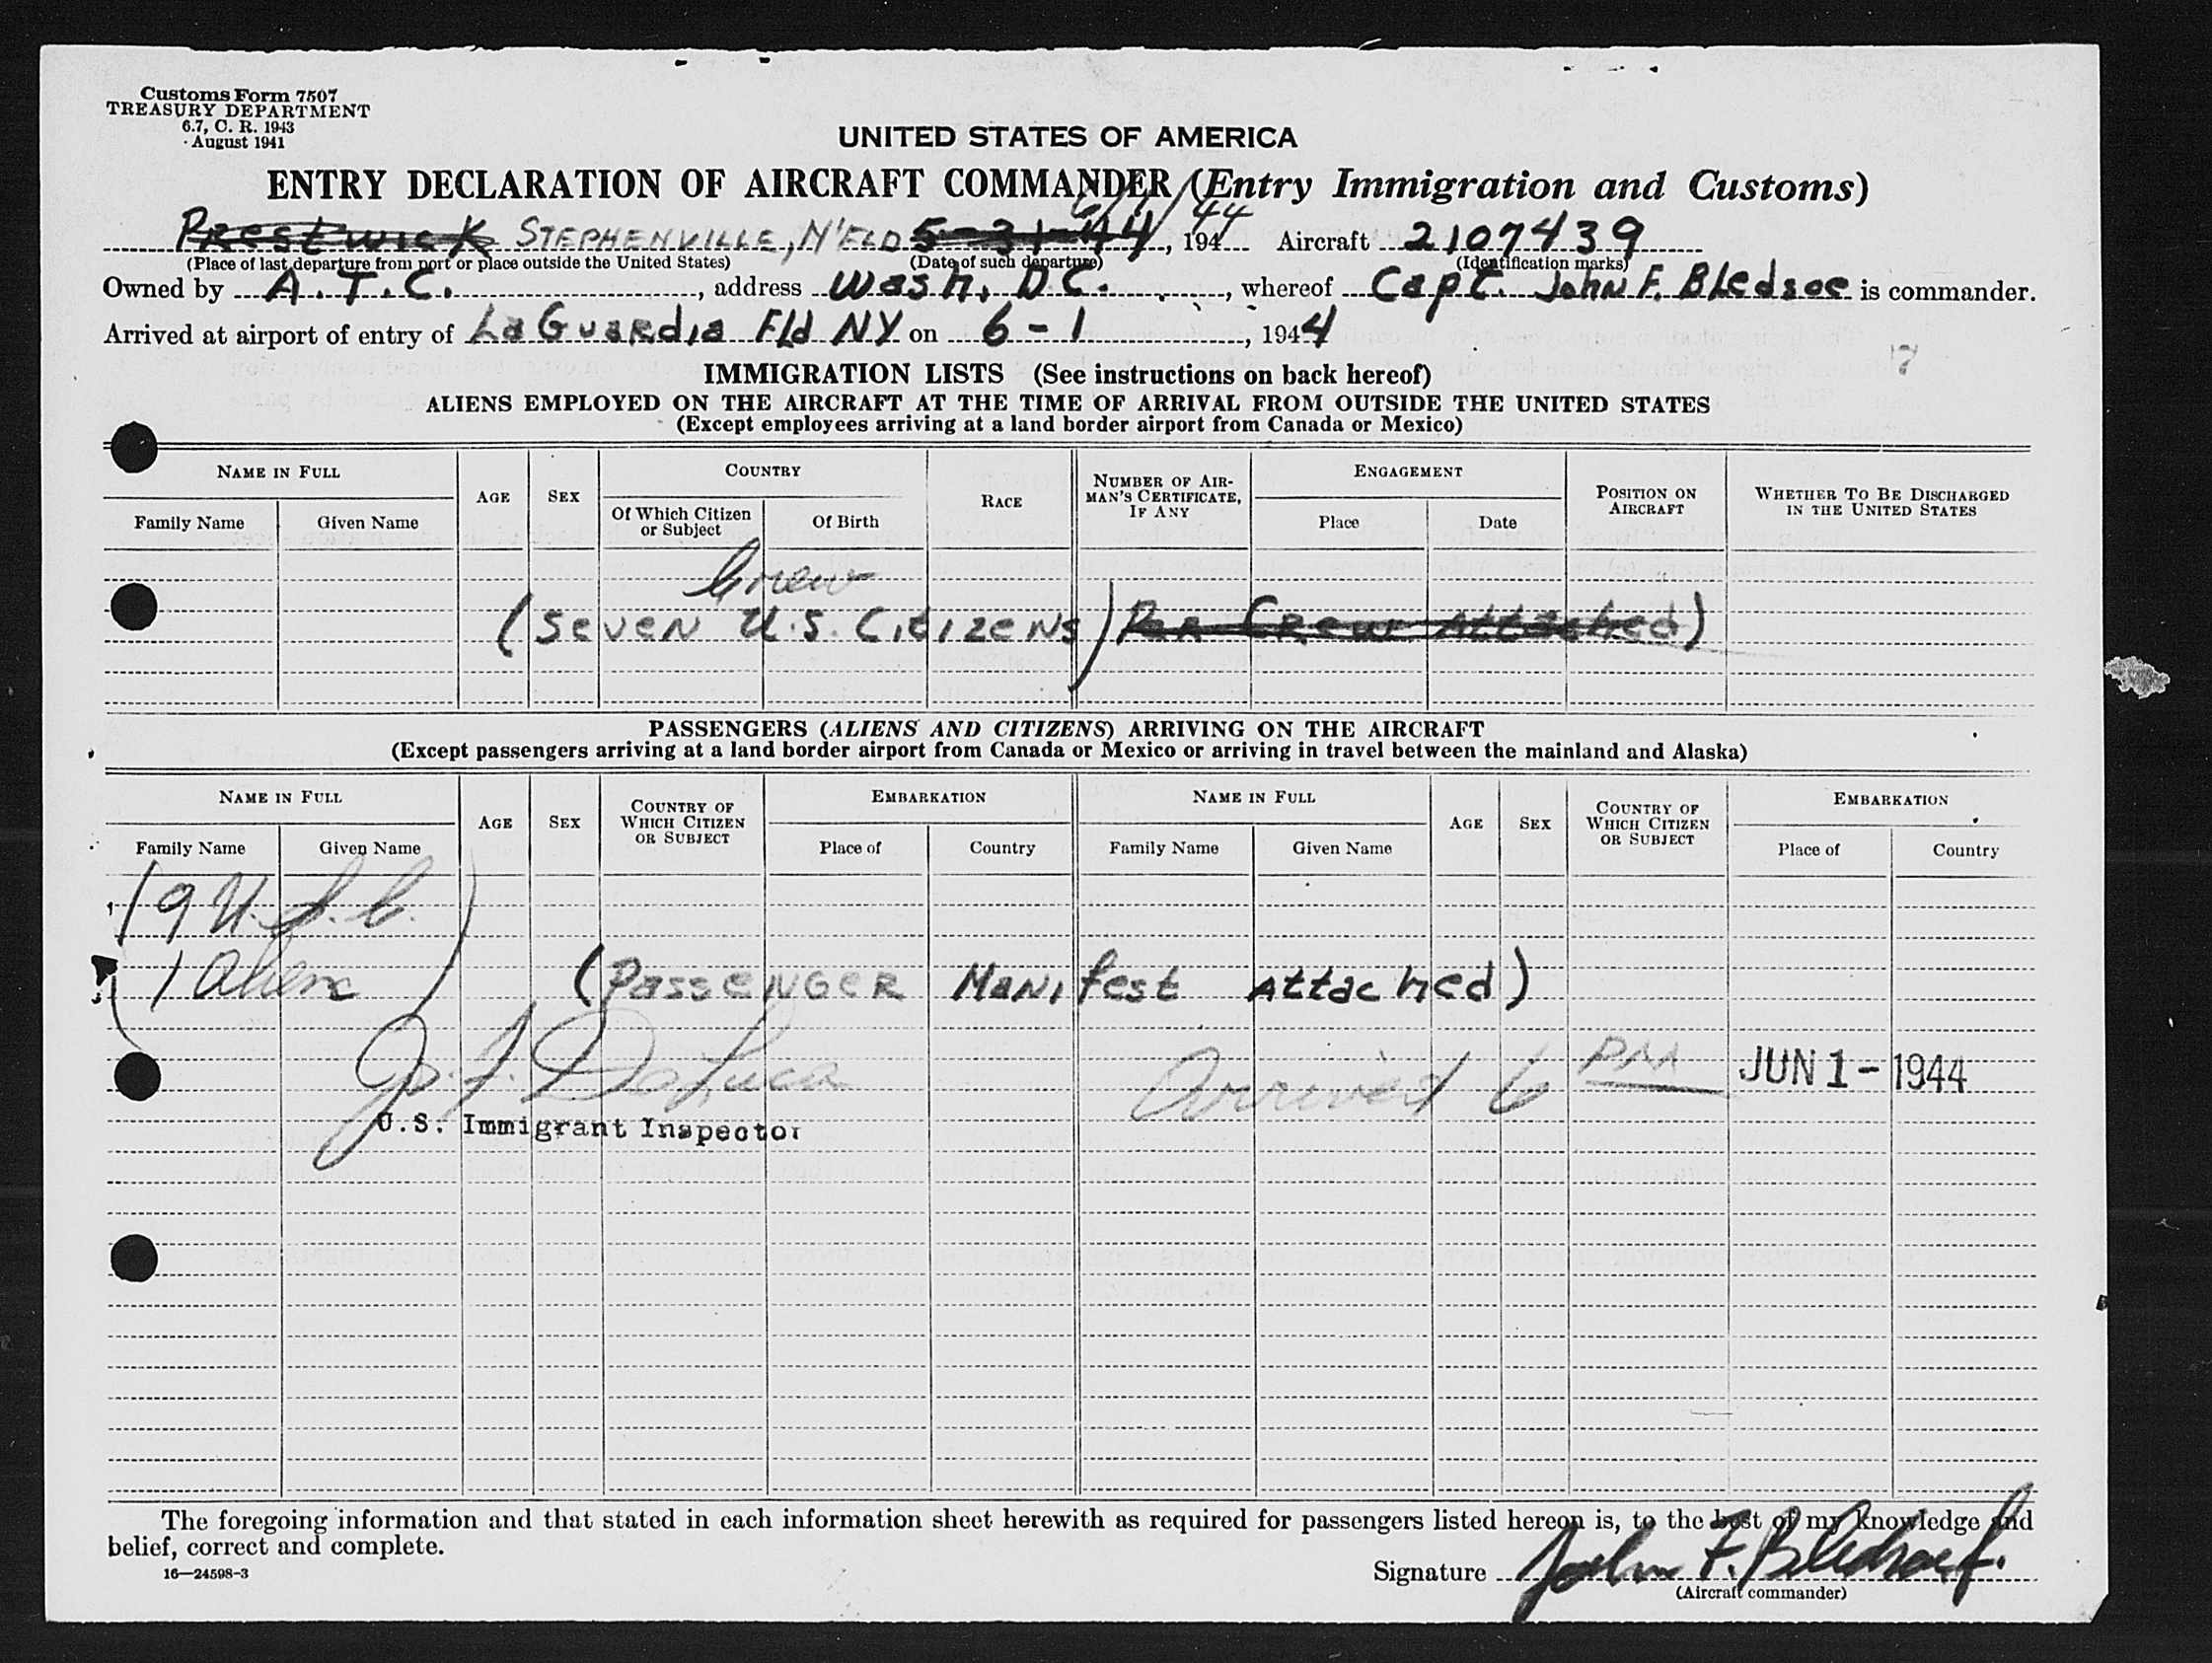 Customs Form 7507
TREASURY DEPARTMENT
6.7, C. R. 1943
August 1941
UNITED STATES OF AMERICA
ENTRY DECLARATION OF AIRCRAFT COMMANDER (Entry Immigration and Customs)
Prestwick STEPHENVILLE, N'FLD 5-31-44 6/1/44, 194 Aircraft 2107439
(Place of last departure from port or place outside the United States) (Date of such departure) (Identification marks)
Owned by A.T.C., address Wash, D.C., whereof Capt. John F. Bledsoe is commander.
Arrived at airport of entry of LaGuardia Fld NY on 6-1, 1944
IMMIGRATION LISTS (See instructions on back hereof)
ALIENS EMPLOYED ON THE AIRCRAFT AT THE TIME OF ARRIVAL FROM OUTSIDE THE UNITED STATES
(Except employees arriving at a land border airport from Canada or Mexico)
NAME IN FULL
Family Name Given Name
AGE SEX
COUNTRY
Of Which Citizen or Subject Of Birth
RACE
NUMBER OF AIRMAN'S CERTIFICATE, IF ANY
ENGAGEMENT
Place Date
POSITION ON AIRCRAFT
WHETHER TO BE DISCHARGED IN THE UNITED STATES
Crew
(Seven U.S. Citizens) Per Crew Attached)
PASSENGERS (ALIENS AND CITIZENS) ARRIVING ON THE AIRCRAFT
(Except passengers arriving at a land border airport from Canada or Mexico or arriving in travel between the mainland and Alaska)
NAME IN FULL
Family Name Given Name
AGE SEX
COUNTRY OF WHICH CITIZEN OR SUBJECT
EMBARKATION
Place of Country
NAME IN FULL
Family Name Given Name
AGE SEX
COUNTRY OF WHICH CITIZEN OR SUBJECT
EMBARKATION
Place of Country
(9 U.S.C.
1 alien)
(Passenger Manifest Attached)
J. DeLuca
Arrived 6 PM JUN 1 - 1944
U.S. Immigrant Inspector
The foregoing information and that stated in each information sheet herewith as required for passengers listed hereon is, to the best of my knowledge and
belief, correct and complete.
16—24598-3
Signature John F. Bledsoe
(Aircraft commander)